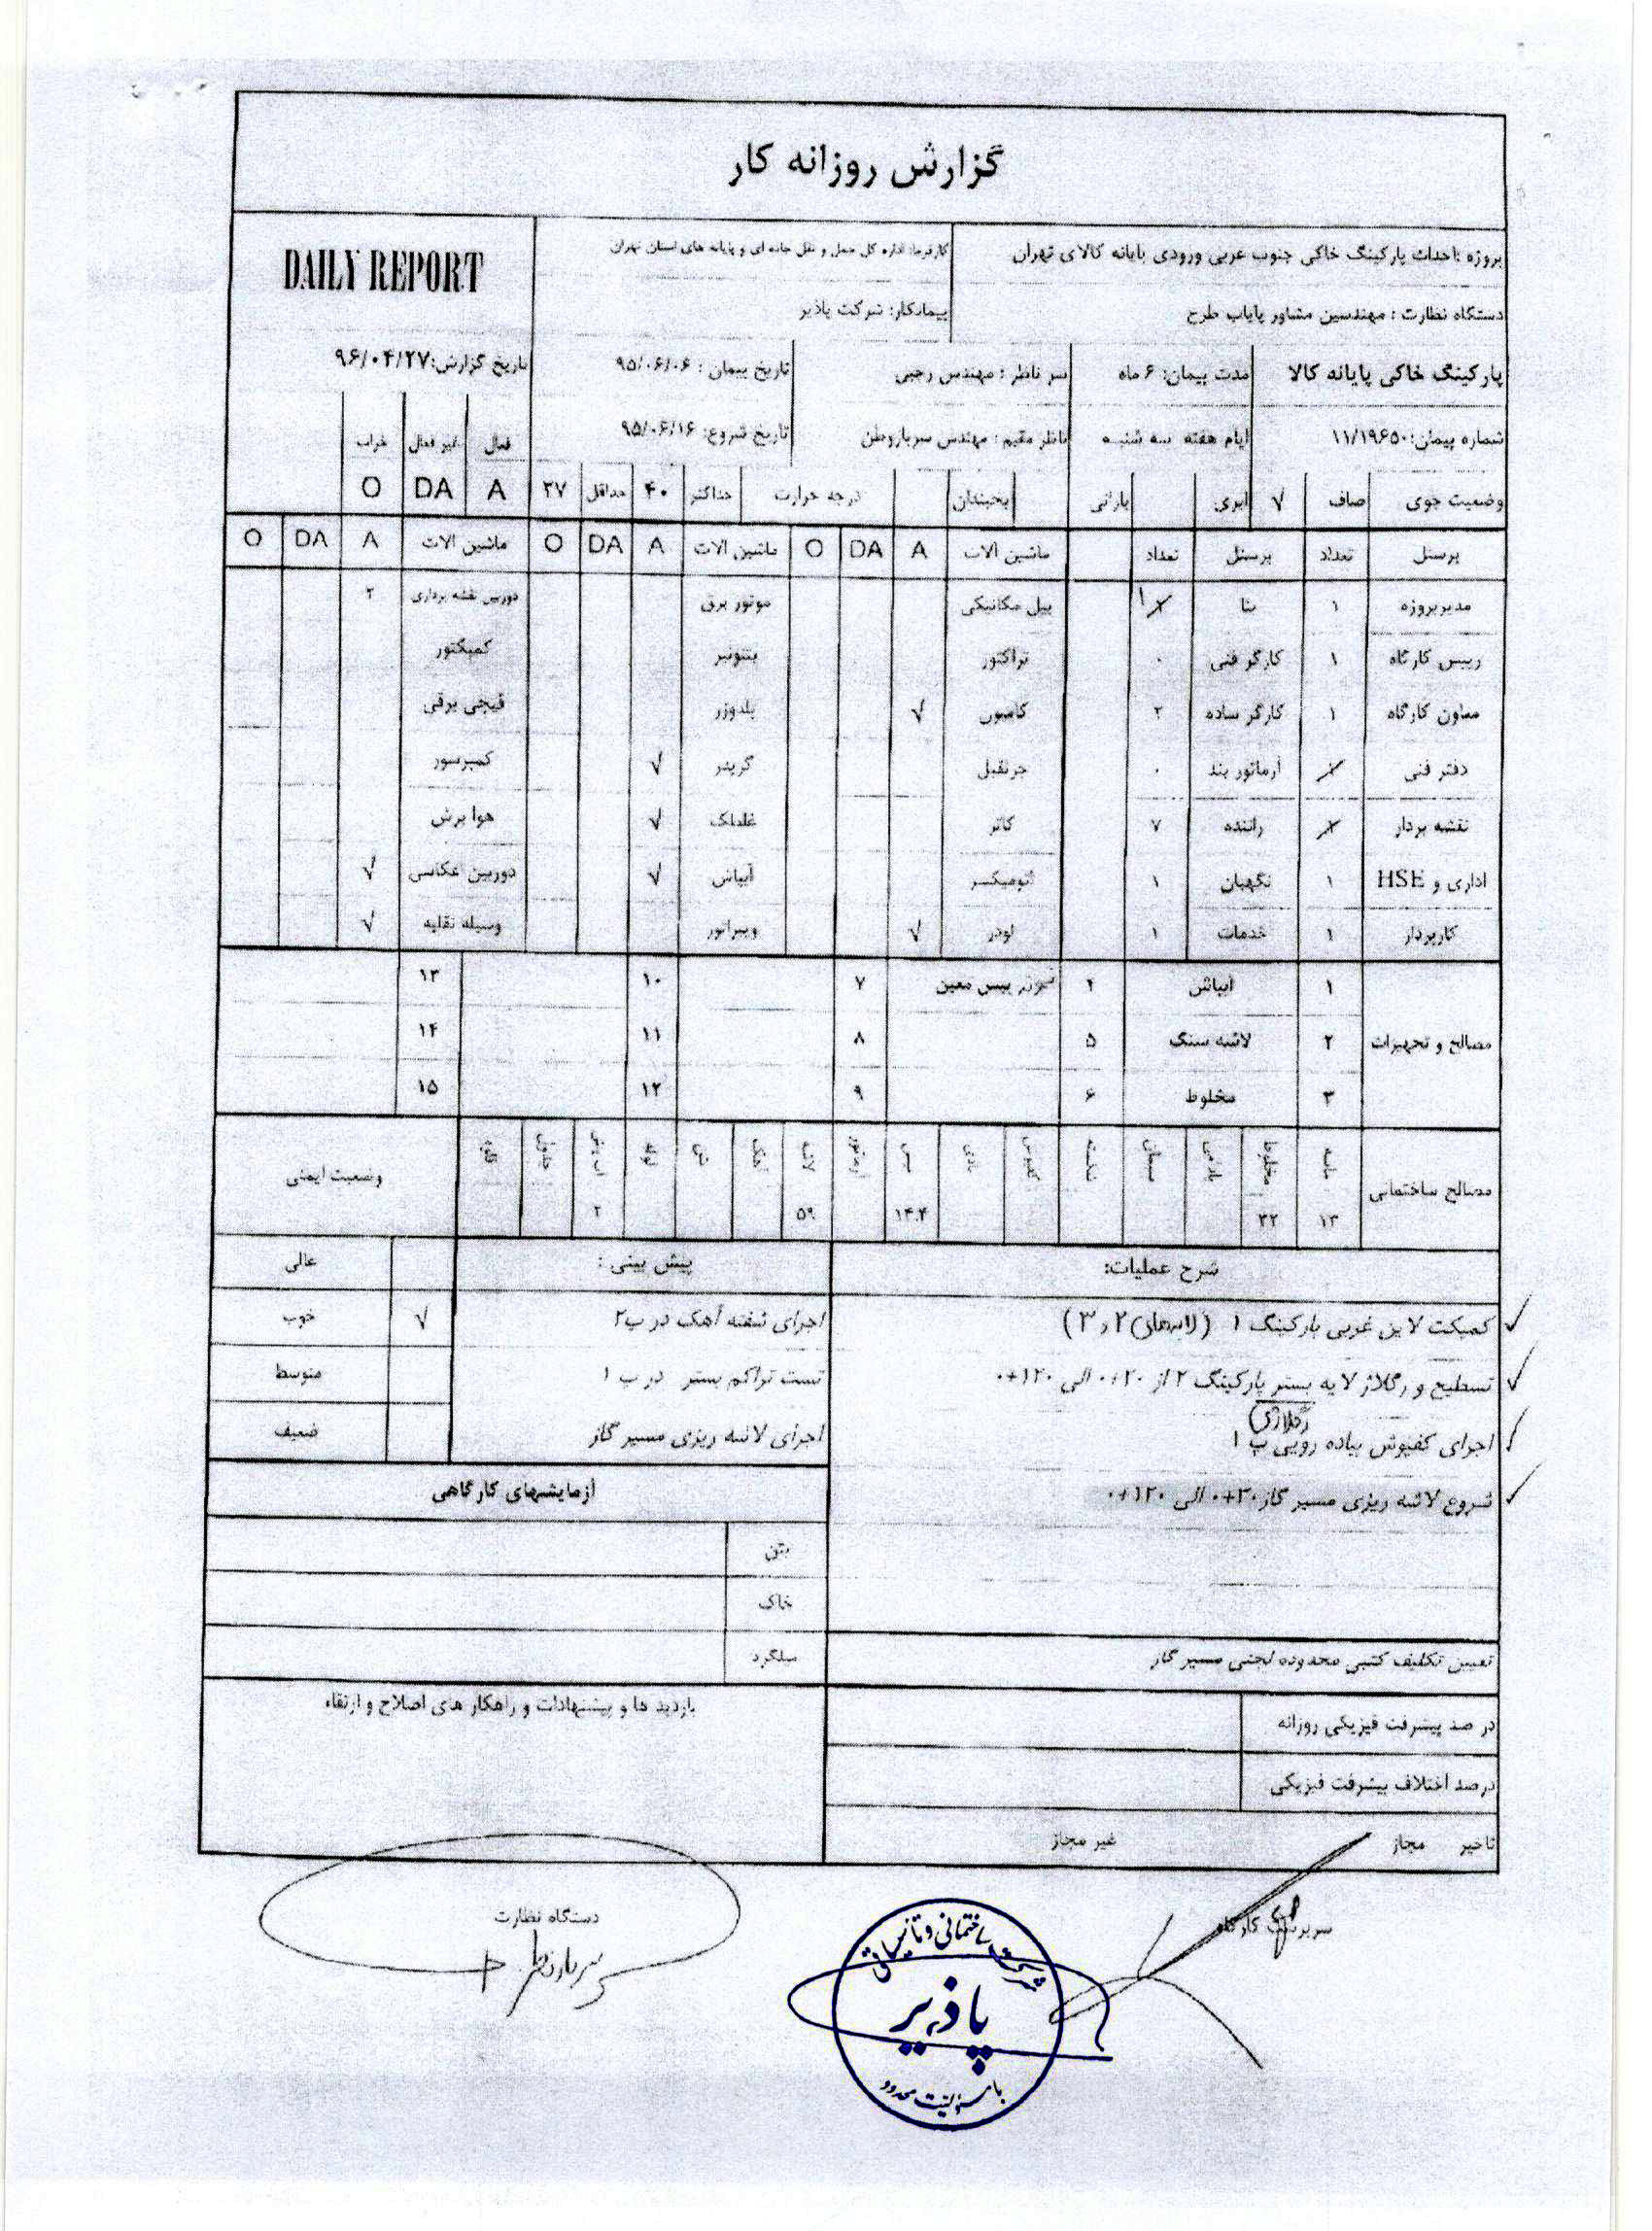 گزارش روزانه کار
پروژه :احداث پارکینگ خاکی جنوب غربی ورودی پایانه کالای تهران
کارفرما: اداره کل حمل و نقل جاده ای و پایانه های استان تهران
DAILY REPORT
دستگاه نظارت : مهندسین مشاور پایاب طرح
پیمانکار: شرکت پاذیر
پارکینگ خاکی پایانه کالا مدت پیمان: ۶ ماه سر ناظر : مهندس رجبی تاریخ پیمان : ۹۵/۰۶/۰۶ تاریخ گزارش:۹۶/۰۴/۲۷
شماره پیمان:۱۱/۱۹۶۵۰ ایام هفته سه شنبه ناظر مقیم : مهندس سرباروطن تاریخ شروع: ۹۵/۰۶/۱۶ فعال غیر فعال خراب
وضعیت جوی صاف √ ابری بارانی یخبندان درجه حرارت حداکثر ۴۰ حداقل ۲۷ A DA O
پرسنل تعداد پرسنل تعداد ماشین آلات A DA O ماشین آلات A DA O ماشین آلات A DA O
مدیرپروژه ۱ بنا ۱ بیل مکانیکی موتور برق دوربین نقشه برداری ۲
رییس کارگاه ۱ کارگر فنی ۰ تراکتور بتونیر کمپکتور
معاون کارگاه ۱ کارگر ساده ۲ کامیون √ بلدوزر قیچی برقی
دفتر فنی آرماتور بند ۰ جرثقیل گریدر √ کمپرسور
نقشه بردار راننده ۷ کاتر غلطک √ هوا برش
اداری و HSE ۱ نگهبان ۱ اتومیکسر آبپاش √ دوربین عکاسی √
کارپرداز ۱ خدمات ۱ لودر √ ویبراتور وسیله نقلیه √
۱ آبپاش ۴ بیس معین ۷ ۱۰ ۱۳
مصالح و تجهیزات ۲ لاشه سنگ ۵ ۸ ۱۱ ۱۴
۳ مخلوط ۶ ۹ ۱۲ ۱۵
مصالح ساختمانی ماسه مخلوط سیمان کفپوش بیس آرماتور لاشه آهک لوله جدول وضعیت ایمنی
۱۳ ۲۲ ۱۴.۴ ۵۹ ۲
شرح عملیات: پیش بینی : عالی
کمپکت لاین غربی پارکینگ ۱ (لایه‌های ۲ و ۳) اجرای شفته آهک در پ۲ √ خوب
تسطیح و رگلاژ لایه بستر پارکینگ ۲ از ۰+۰۲۰ الی ۰+۱۲۰ تست تراکم بستر در پ ۱ متوسط
رگلاژی
اجرای کفپوش پیاده رویی پ ۱ اجرای لاشه ریزی مسیر گاز ضعیف
شروع لاشه ریزی مسیر گاز ۰+۰۳۰ الی ۰+۱۲۰ آزمایشهای کارگاهی
بتن
خاک
میلگرد
تعیین تکلیف کتبی محدوده لجنی مسیر گاز
بازدید ها و پیشنهادات و راهکار های اصلاح و ارتقاء
در صد پیشرفت فیزیکی روزانه
درصد اختلاف پیشرفت فیزیکی
تاخیر مجاز غیر مجاز
سرپرست کارگاه دستگاه نظارت
شرکت ساختمانی و تاسیساتی
پاذیر
با مسئولیت محدود